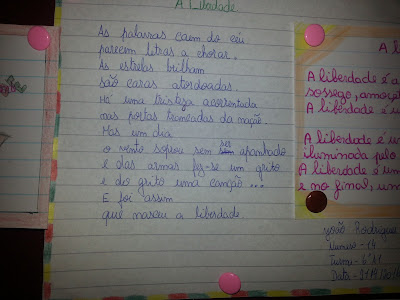 A Liberdade
As palavras caem do céu
parecem letras a chorar.
As estrelas brilham
são caras atordoadas
Há uma tristeza acorentada
nas portas trancadas da nação.
Mas um dia
o vento soprou sem ser apanhado
e das armas fez-se um grito
e do grito uma canção ...
E foi assim
que nasceu a liberdade
A li
A liberdade é a
sossego, amor
A liberdade é u
A liberdade é um
iluminada pelo
A liberdade é um
e no final, um
João Rodrigues
Número - 14
Turma - 6º
Data -